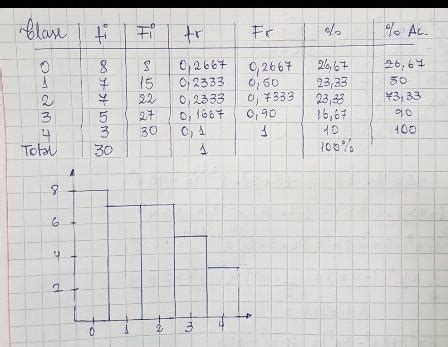 Clase fi Fi fr Fr % % Ac.
0 8 8 0,2667 0,2667 26,67 26,67
1 7 15 0,2333 0,50 23,33 50
2 7 22 0,2333 0,7333 23,33 73,33
3 5 27 0,1667 0,90 16,67 90
4 3 30 0,1 1 10 100
Total 30 1 100%
8
6
4
2
0 1 2 3 4